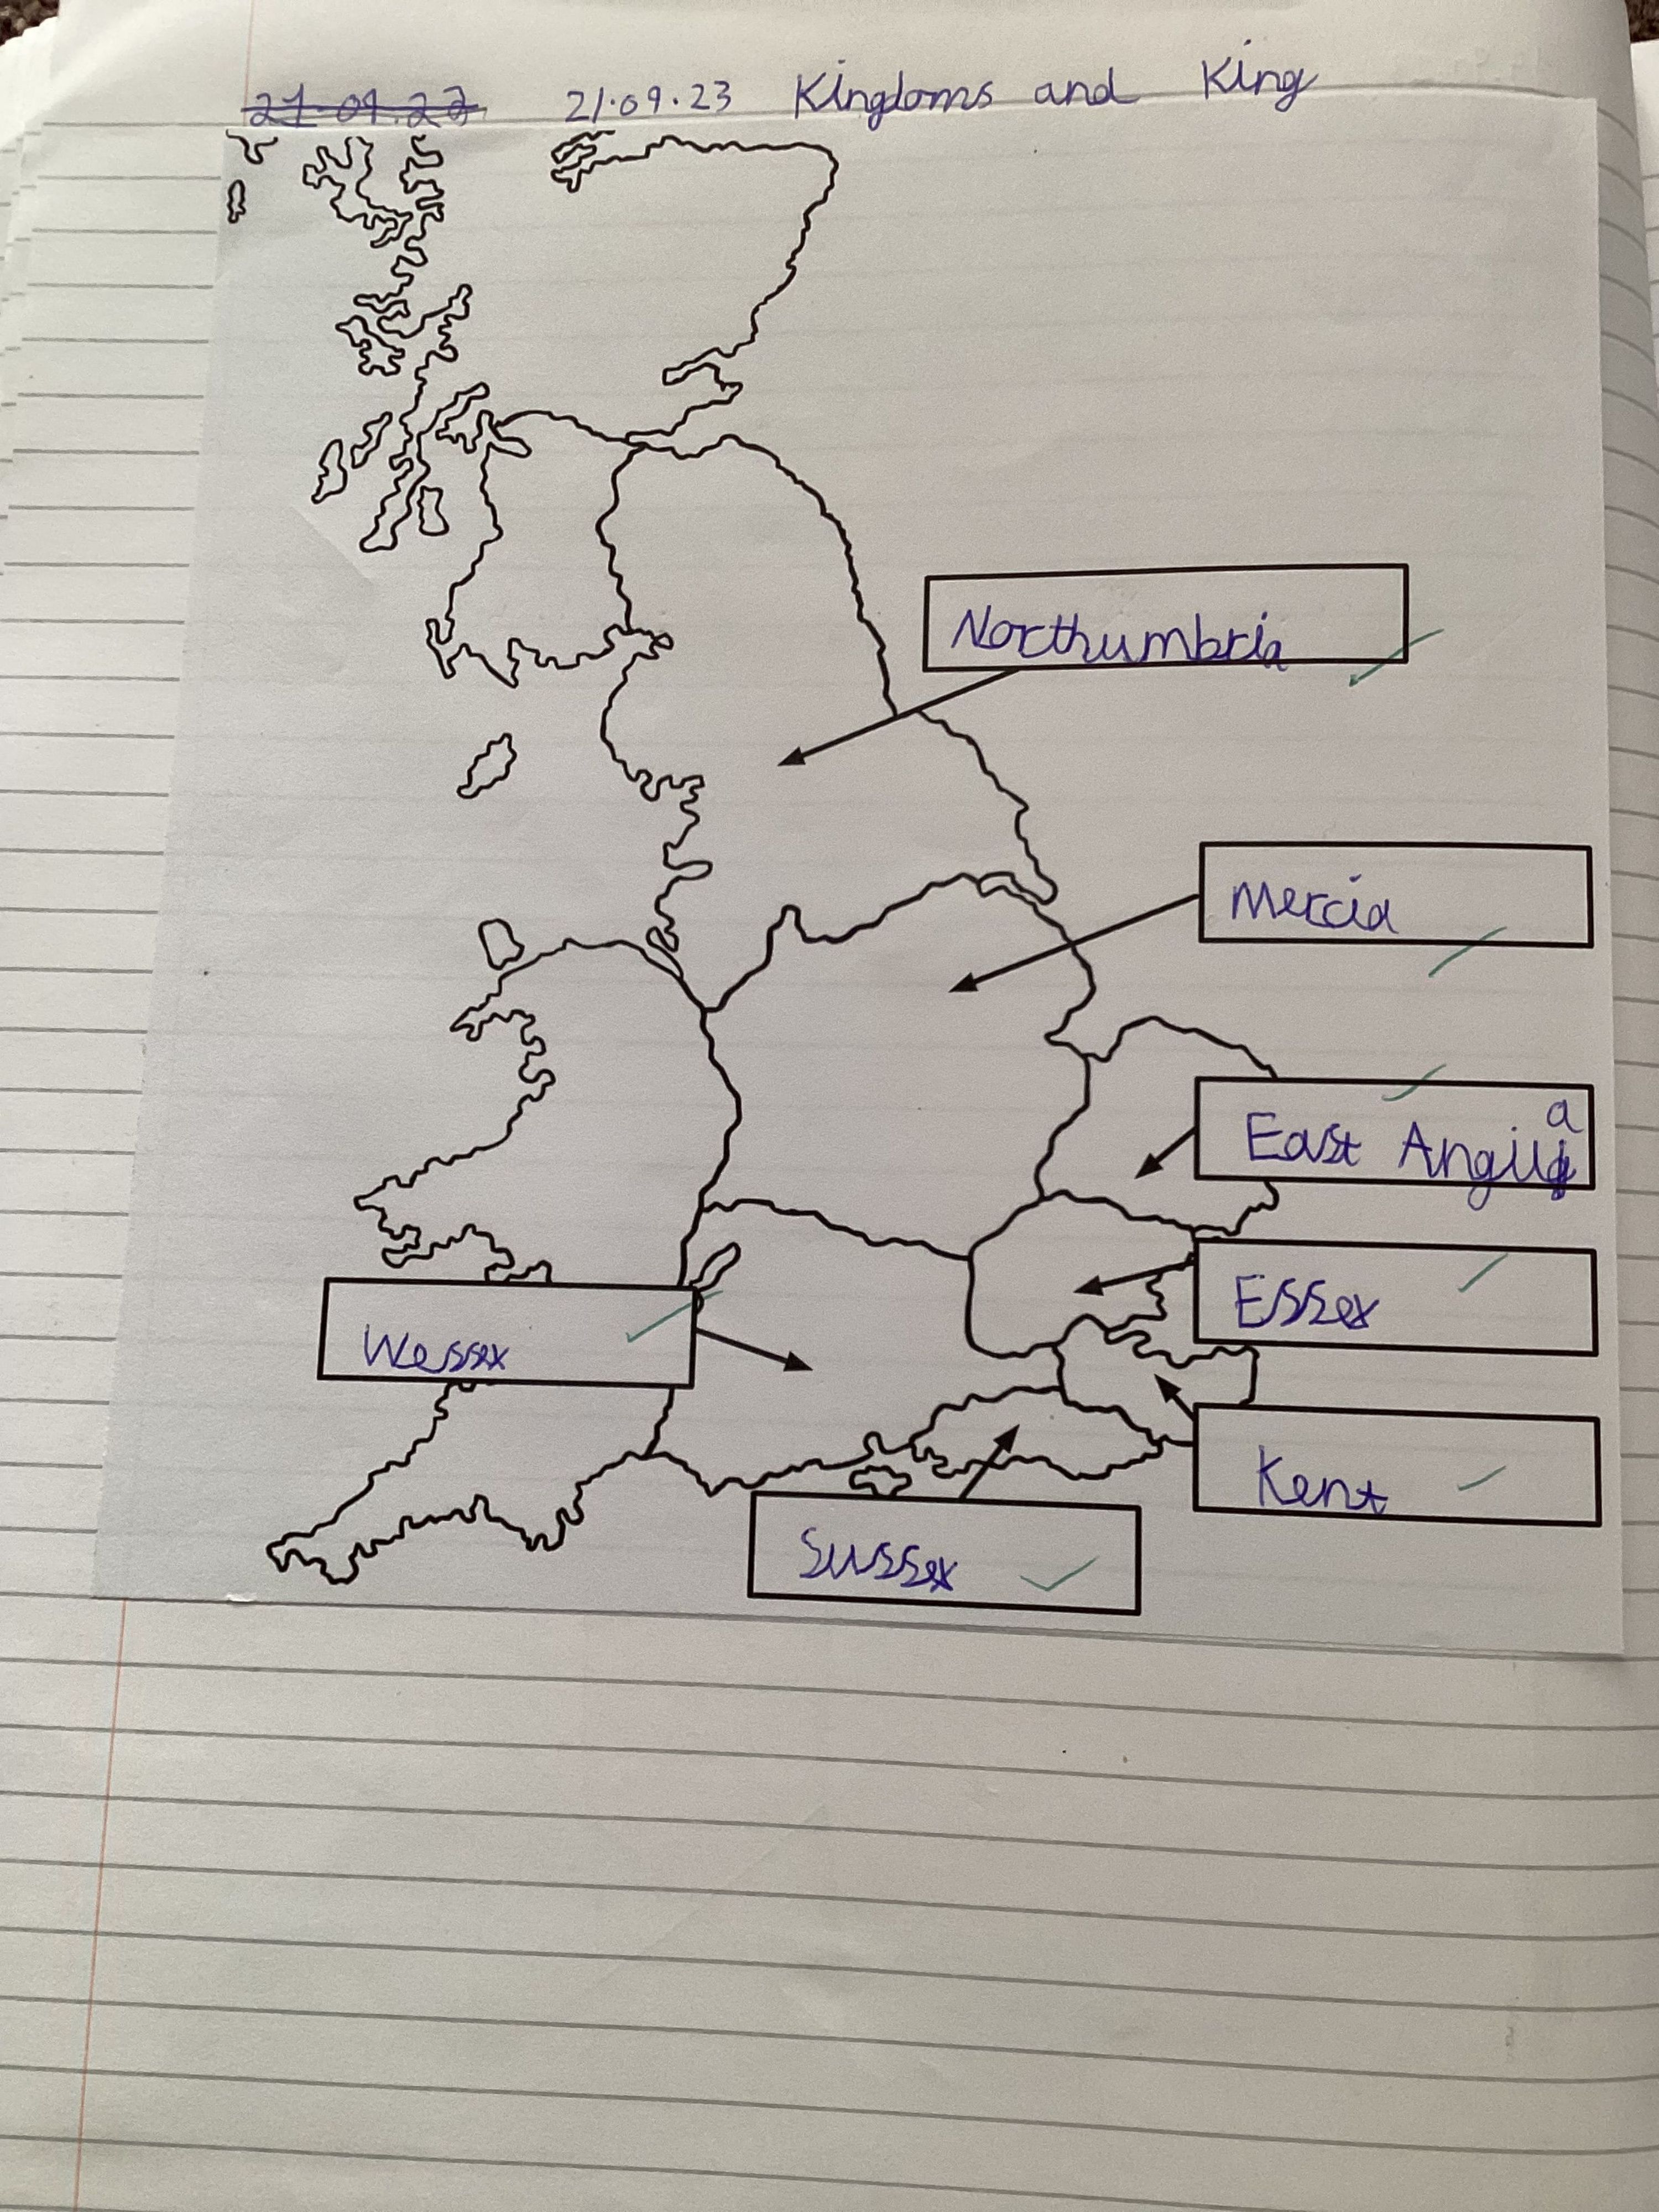 21.09.22 21.09.23 Kingdoms and King
Northumbria
Mercia
East Anglia
Essex
Wessex
Kent
Sussex